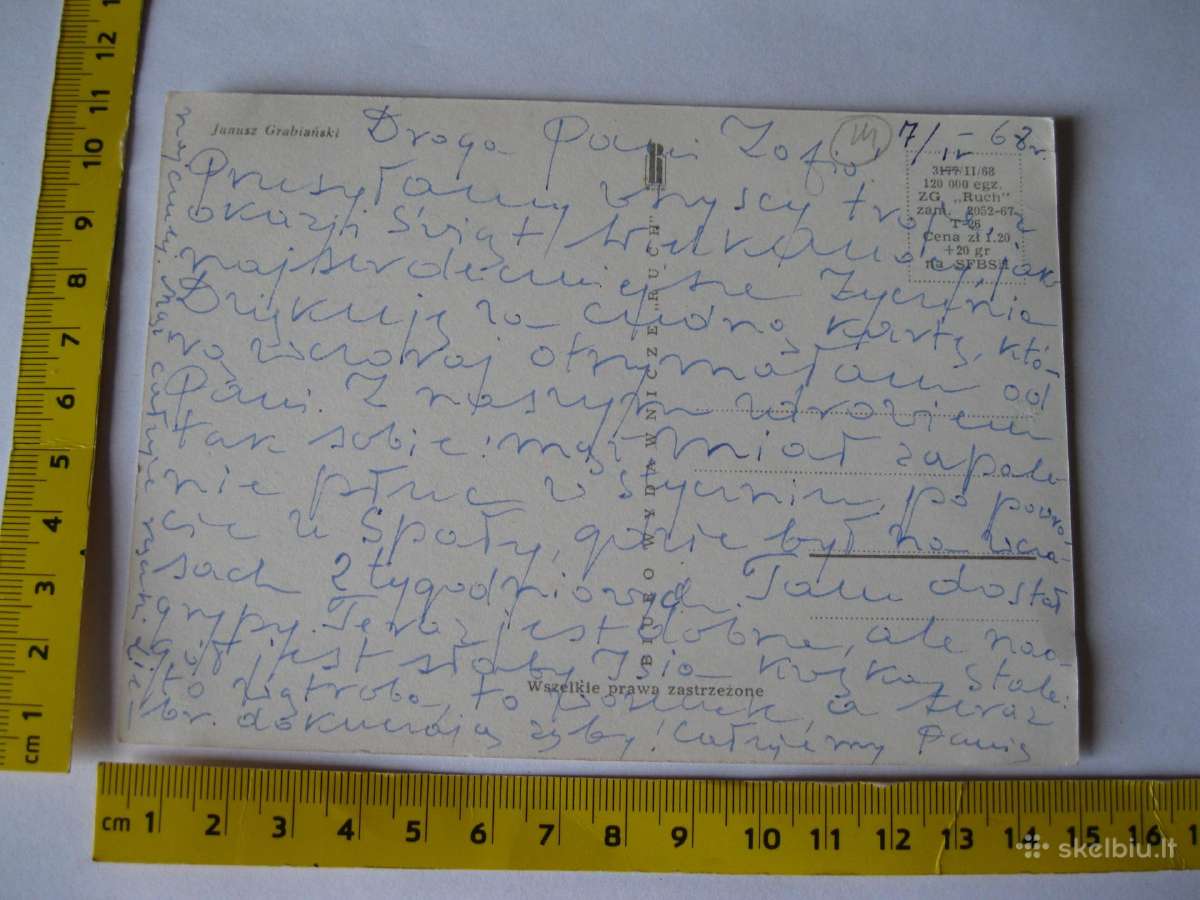 Janusz Grabiański
7/IV-68r.
Droga Pani Zofio!
Przesyłamy wszyscy troje, z
okazji Świąt Wielkanocy, jak
najserdeczniejsze życzenia
Dziękuję za cudną kartę, któ-
rą wczoraj otrzymałam od
Pani. Z naszym zdrowiem
tak sobie: mąż miał zapale-
nie płuc w styczniu, po powro-
cie z Spały, gdzie był na wcza-
sach 2 tygodniowych. Tam dostał
grypy. Teraz jest dobrze, ale nao-
gół jest słaby. Isia kicha stale:
to wątroba, to a teraz
br. dokuczają zęby! Całujemy Panią
najczulej. Mąż całuje rączki.
3177/II/68
120 000 egz.
ZG „Ruch"
zam. 2052-67
T-26
Cena zł 1.20
+20 gr
na SFBSiI
BIURO WYDAWNICZE „RUCH"
Wszelkie prawa zastrzeżone
12
11
10
9
8
7
6
5
4
3
2
1
cm
cm 1 2 3 4 5 6 7 8 9 10 11 12 13 14 15 16
skelbiu.lt